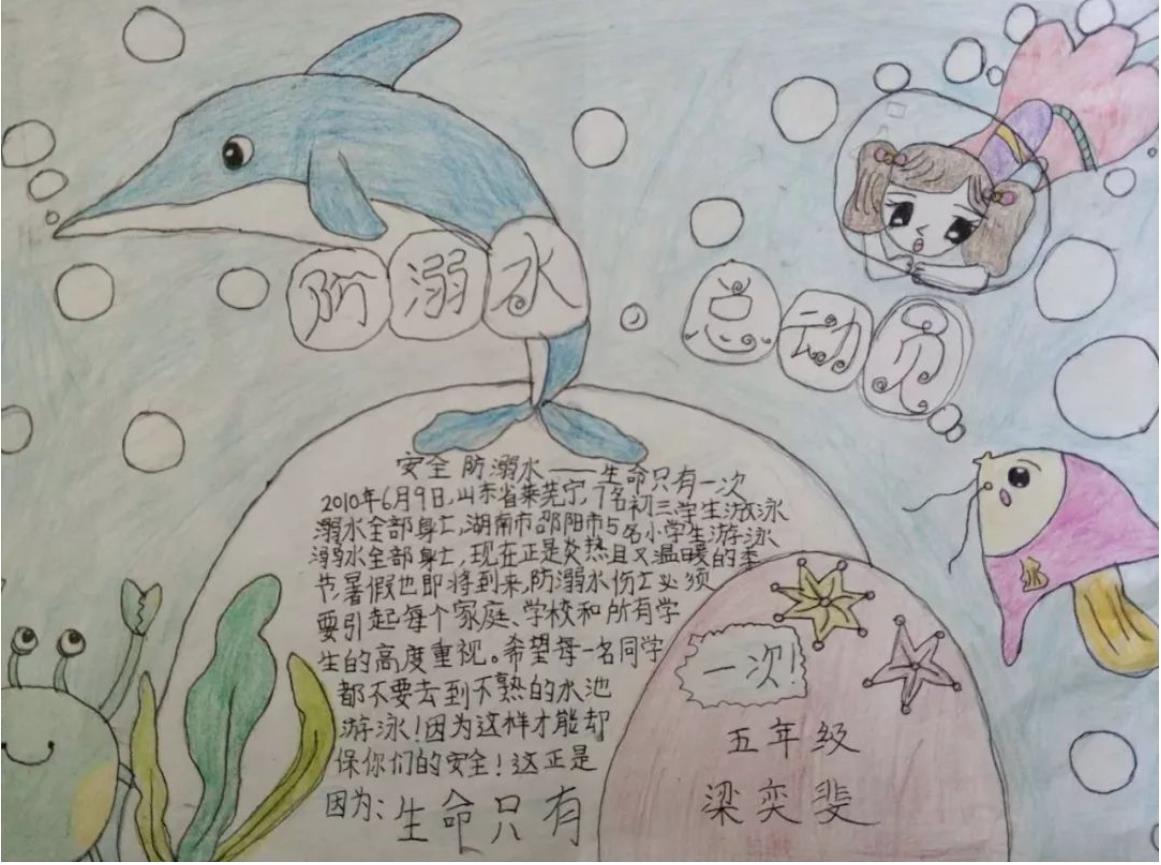 防溺水
总动员
安全 防溺水——生命只有一次
2010年6月9日,山东省莱芜宁,7名初三学生游泳
溺水全部身亡,湖南市邵阳市5名小学生游泳
溺水全部身亡,现在正是炎热且又温暖的季
节,暑假也即将到来,防溺水伤亡必须
要引起每个家庭、学校和所有学
生的高度重视。希望每一名同学
都不要去到不熟的水池
游泳!因为这样才能却
保你们的安全!这正是
因为:生命只有
一次!
五年级
梁奕斐